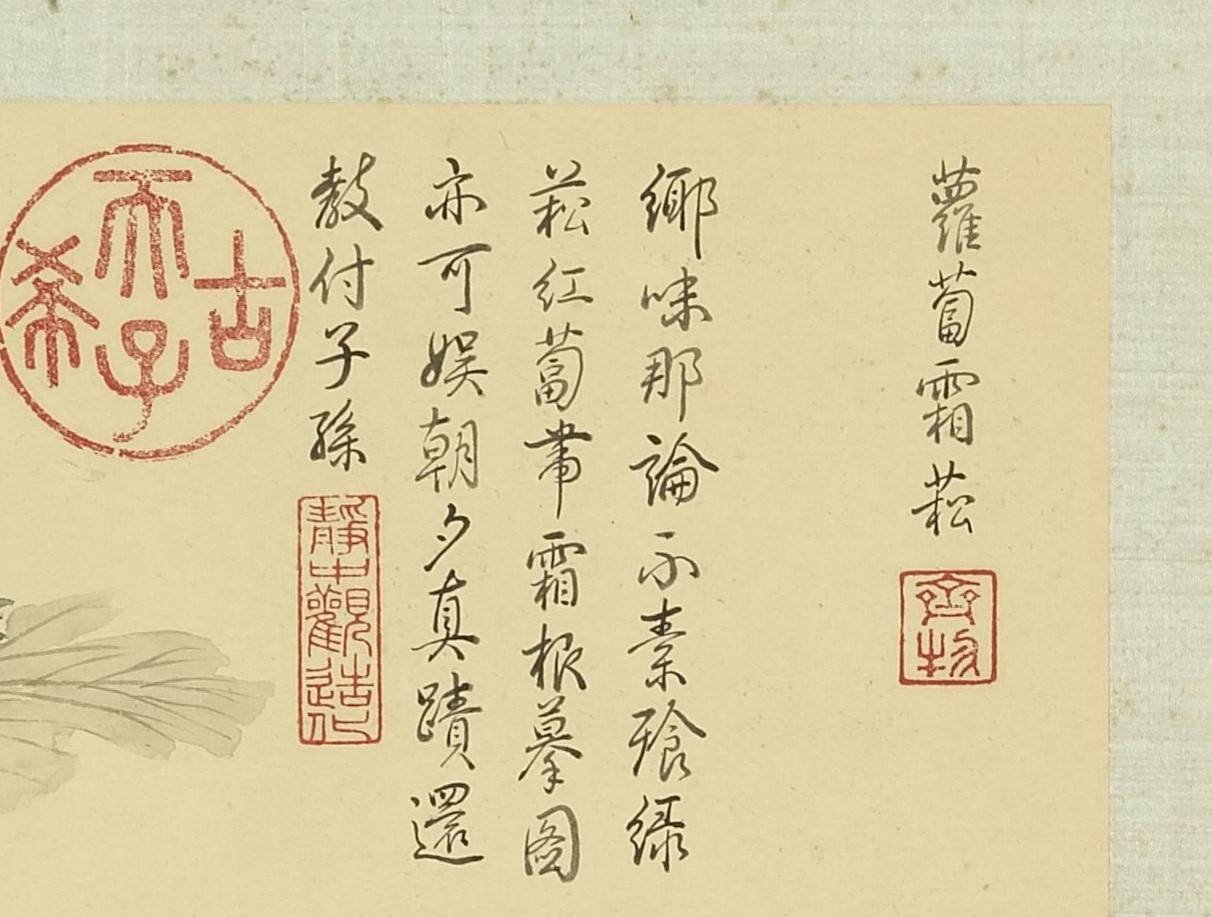 蘿蔔霜菘
齊物
鄉味那論不素飱綠
菘紅蔔帶霜根摹圖
亦可娛朝夕真蹟還
教付子孫
靜中觀造化
古希天子